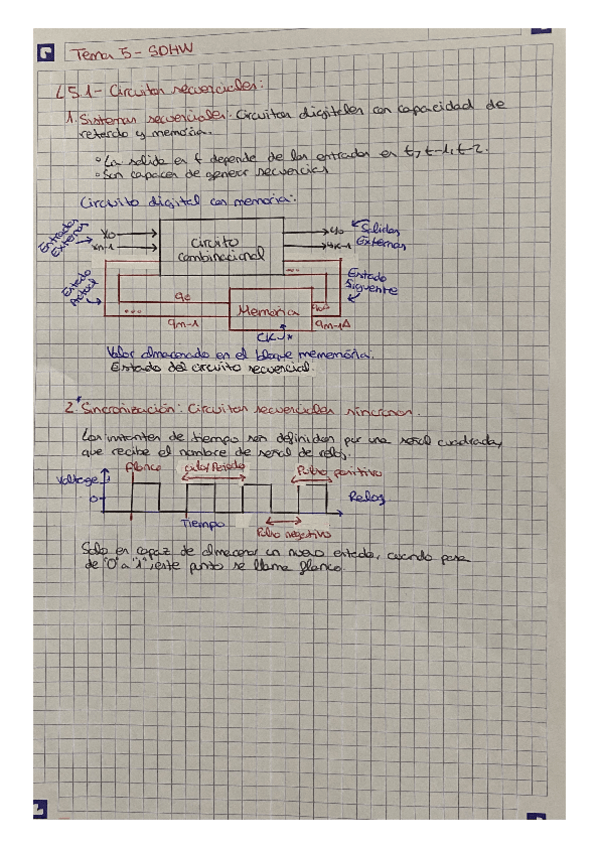 Tema 5 - SDHW
L5.1- Circuitos secuenciales:
1. Sistemas secuenciales: Circuitos digitales con capacidad de
retardo y memoria.
° La salida en t depende de las entradas en t, t-1, t-2.
° Son capaces de generar secuencias
Circuito digital con memoria:
Entradas Externas
x0
xn-1
Circuito
combinacional
y0
yk-1
Salidas
Externas
Estado
Actual
...
...
Estado
Siguente
q0
Memoria
q0Δ
qm-1
qm-1Δ
CK
Valor almacenado en el bloque mememória:
Estado del circuito secuencial.
2. Sincronización: Circuitos secuenciales síncronos.
Los instantes de tiempo son definidos por una señal cuadrada,
que recibe el nombre de señal de reloj.
Flanco
Ciclo/Periodo
Pulso positivo
Voltage
0
Reloj
Tiempo
Pulso negativo
Solo es capaz de almacenar un nuevo estado, cuando pasa
de "0" a "1", este punto se llama flanco.